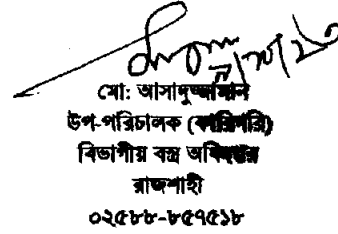 মো: আসাদুজ্জামান
উপ-পরিচালক (কারিগরি)
বিভাগীয় বস্ত্র অধিদপ্তর
রাজশাহী
০২৫৮৮-৮৫৭৫১৮